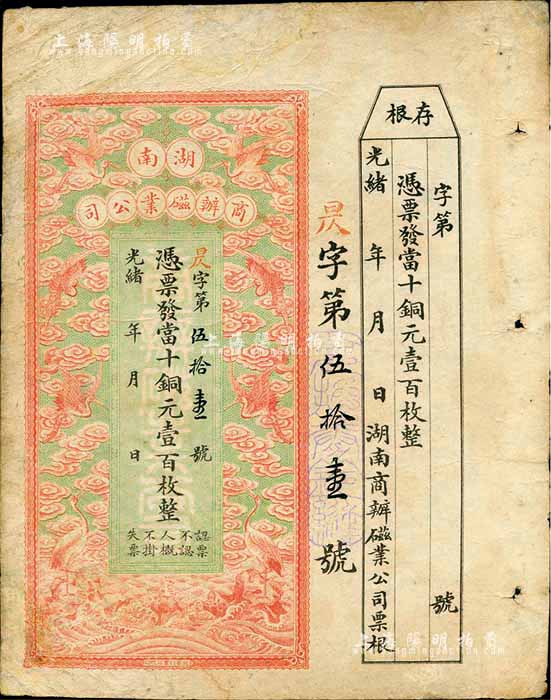 上海陽明拍賣
www.ymauction.com
根存
字第 號
憑票發當十銅元壹百枚整
光緒 年 月 日湖南商辦磁業公司票根
昃字第伍拾壹號
南湖
司公業磁辦商
昃字第伍拾壹號
憑票發當十銅元壹百枚整
光緒 年 月 日
失不人不認
票掛概認票
上海陽明拍賣
上海陽明拍賣